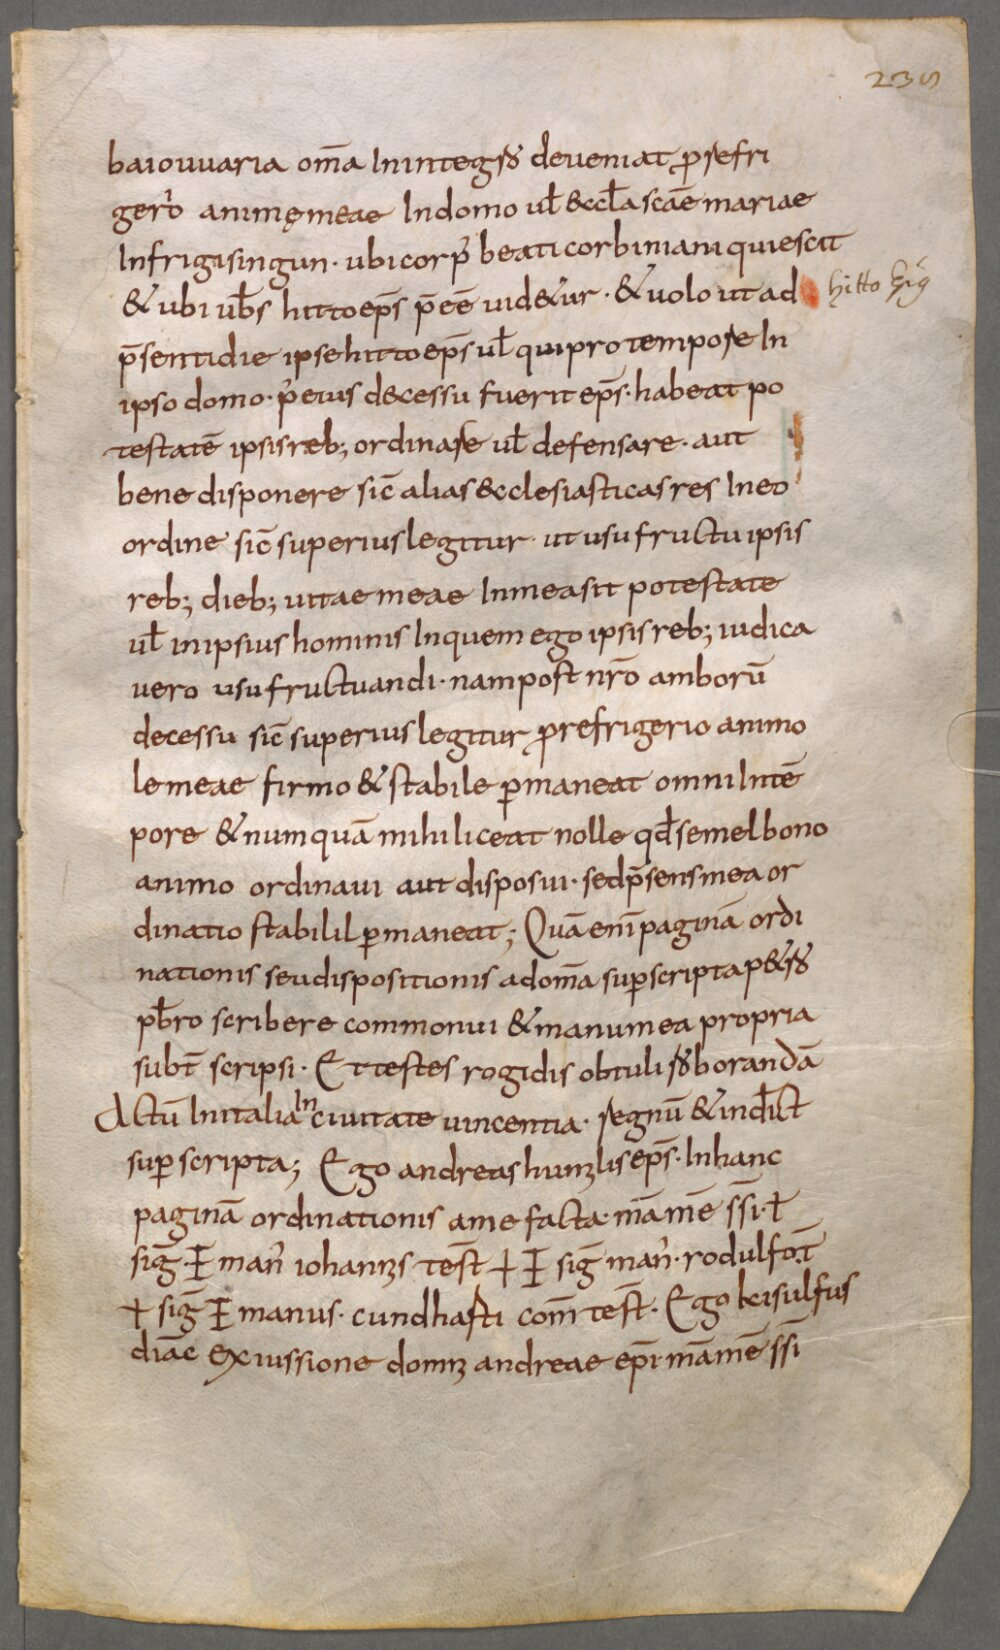 235
baiouuaria om̄a Inintegrū deueniat p̱refri
gerio animę meae Indomo ul̄ &ccl̄a scāe mariae
Infrigisingun · ubi corp̓ beati corbiniani quiescit
& ubi ūbs hitto ep̄s p̄eē uid&ur · & uolo ut ad
hitto
p̄senti die ipse hitto ep̄s ul̄ qui pro tempore In
ipso domo · p̓ eius decessu fuerit ep̄s · habeat po
testatē ipsis reb; ordinare ul̄ defensare · aut
bene disponere sic̄ alias &cclesiasticas res In eo
ordine sic̄ superius legitur ut usu fructu ipsis
reb; dieb; uitae meae In mea sit potestate
ul̄ in ipsius hominis In quem ego ipsis reb; iudica
uero usu fructuandi · nam post nr̄o amborū
decessu sic̄ superius legitur p̱ refrigerio animo
le meae firmo & stabile p̱maneat omni In tē
pore & numquā mihi liceat nolle qd̄ semel bono
animo ordinaui aut disposui · sed p̄sens mea or
dinatio stabilil p̱maneat; Quā enī paginā ordi
nationis seu dispositionis ad om̄a sup̱ scripta p&rū
pb̄ro scribere commonui & manu mea propria
subt̄ scripsi · Et testes rogidis obtuli roborandā
Actū In italia In ciuitate uincentia · regnū & ind̄ict
sup̱ scripta; Ego andreas humilis ep̄s · In hanc
paginā ordinationis a me facta · mā mē s̄s̄i · †
sig̅ · ⁜ man̓ iohannis test̄ † ⁜ sig̅ man̓ · rodulfo t̄
† sig̅ ⁜ manus · cundhasti com̄ test̄ · Ego keisulfus
diac̄ ex iussione domni andreae ep̄i mā mē s̄s̄i